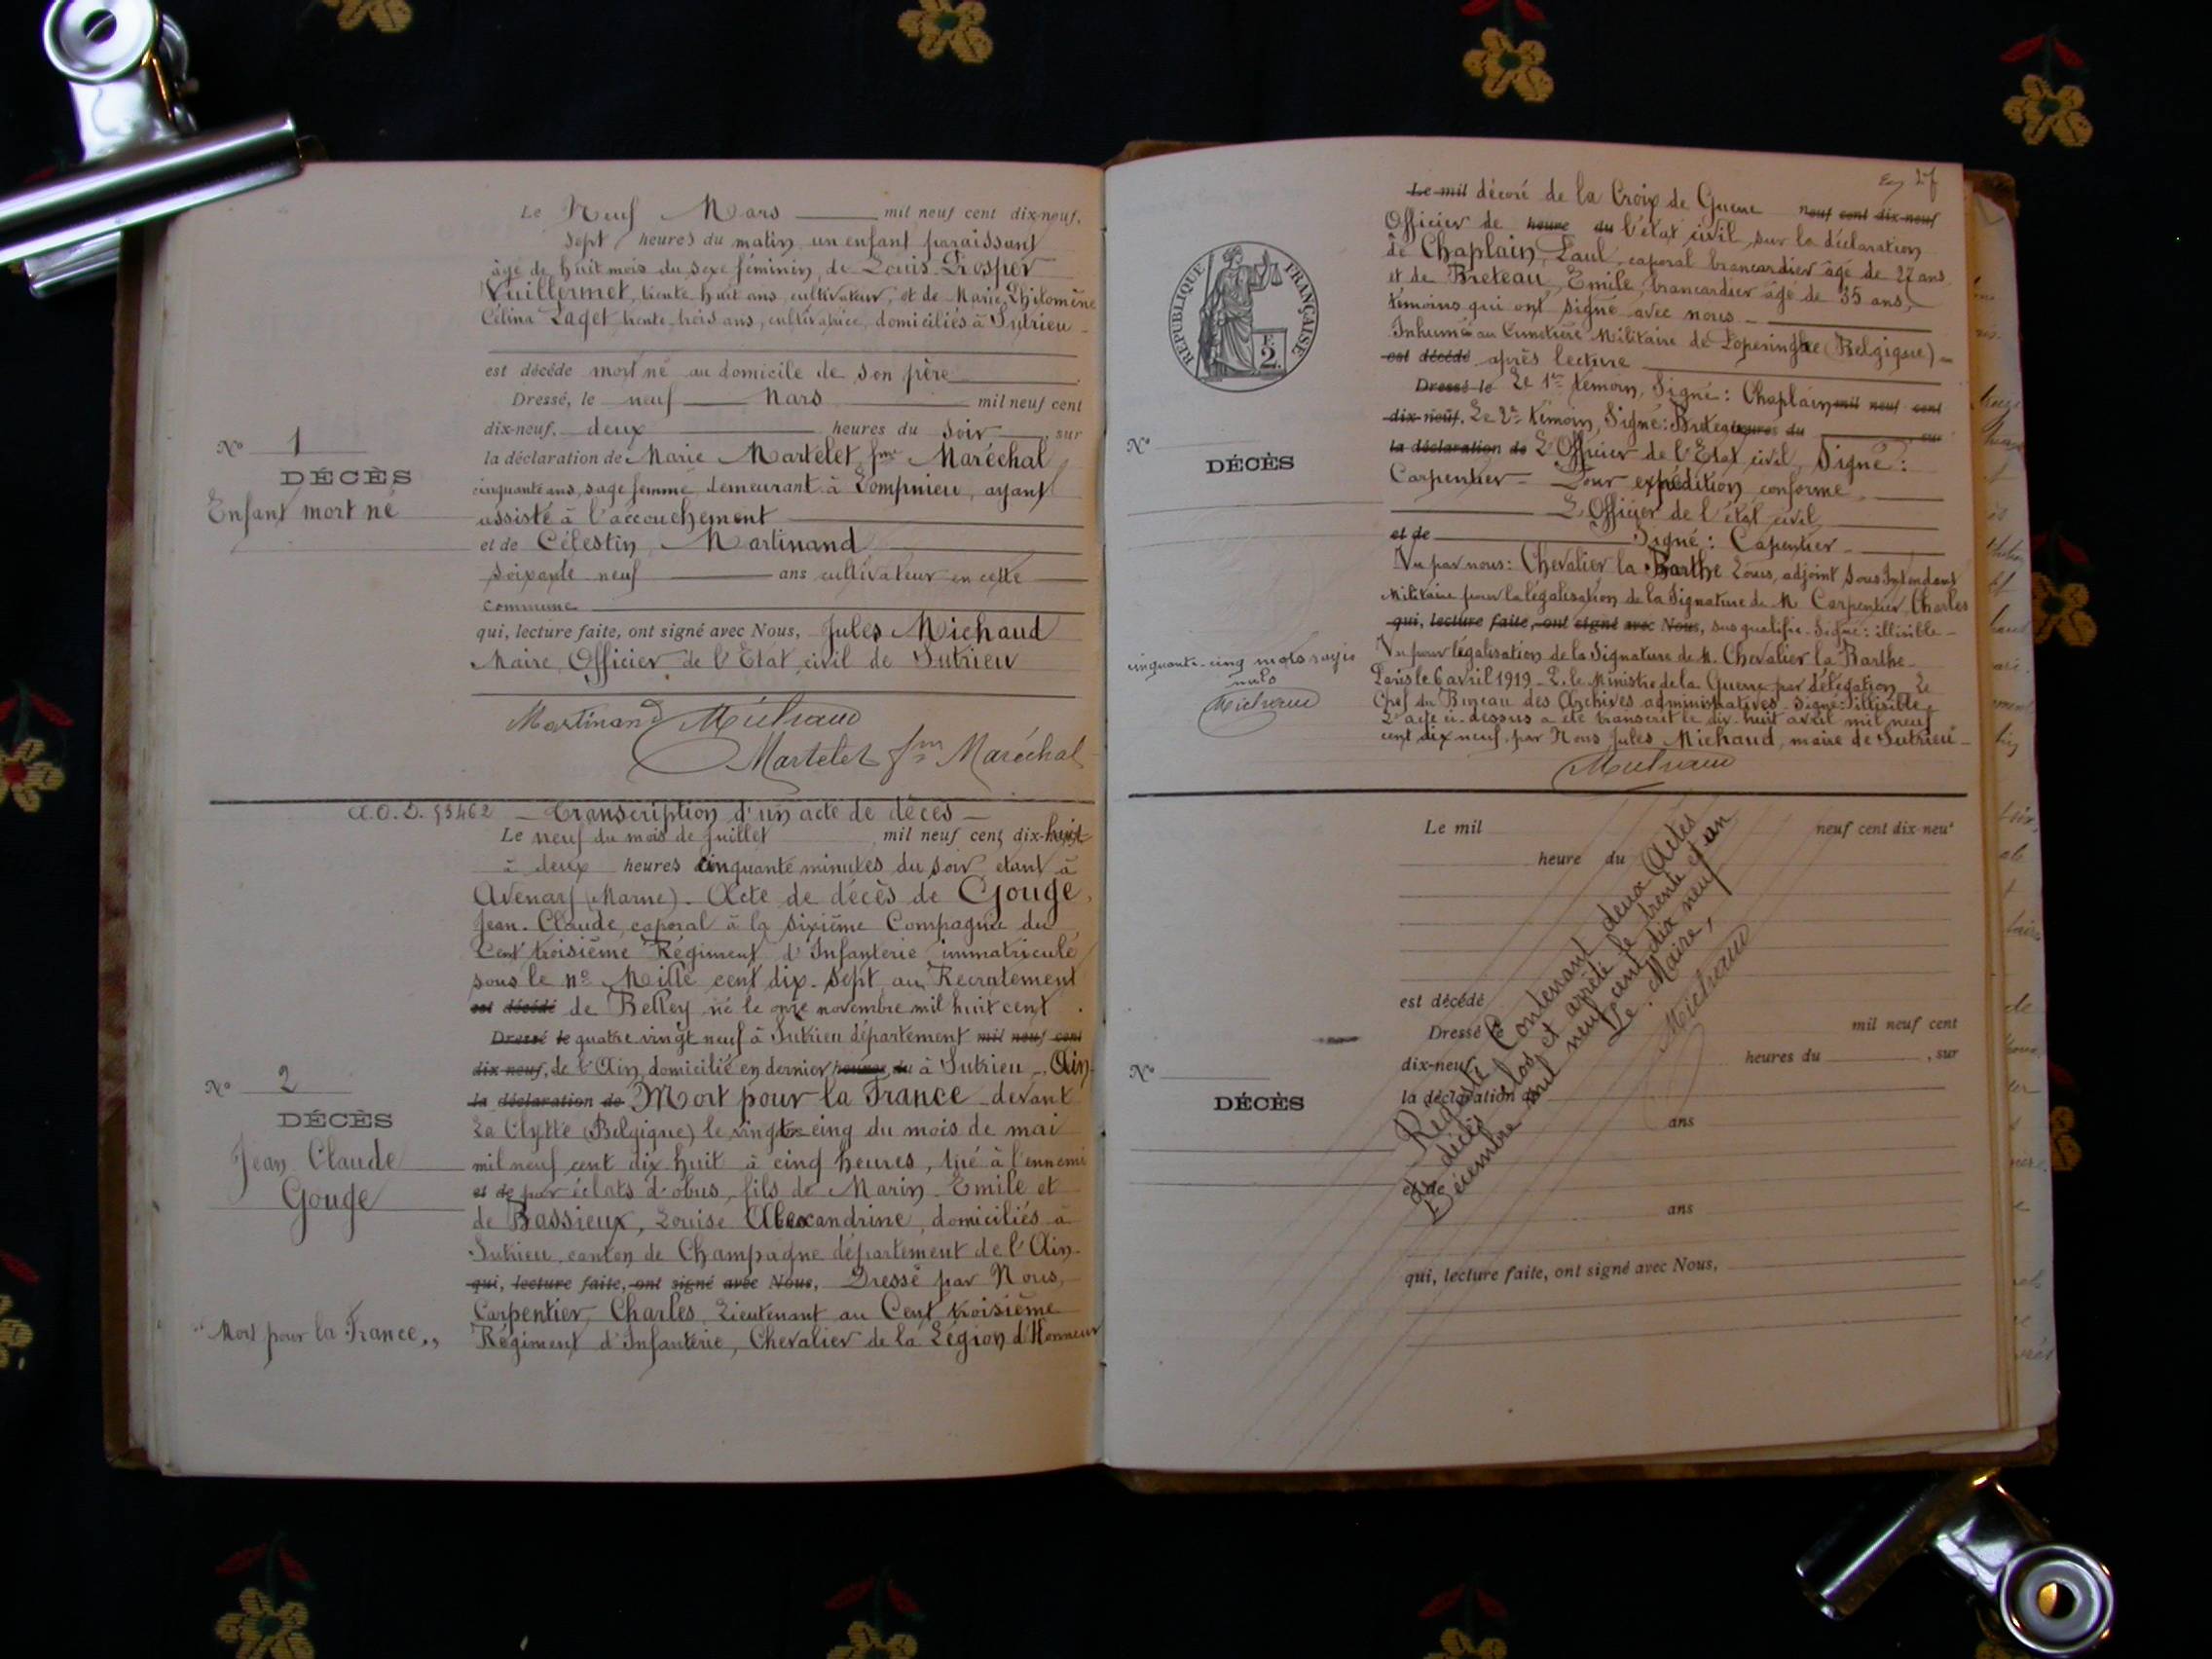 Le Neuf Mars mil neuf cent dix-neuf,
sept heures du matin un enfant paraissant
âgé de huit mois du sexe féminin, de Louis Prosper
Vuillermet, trente huit ans, cultivateur, et de Marie Philomène
Célina Laget trente trois ans, cultivatrice, domiciliés à Sutrieu
est décédé mort né au domicile de son père
Dressé, le neuf Mars mil neuf cent
dix-neuf, deux heures du soir, sur
la déclaration de Marie Martelet fme Maréchal
cinquante ans, sage femme demeurant à Lompnieu, ayant
assisté à l'accouchement
et de Célestin Martinand
soixante neuf ans cultivateur en cette
commune
qui, lecture faite, ont signé avec Nous, Jules Michaud
Maire, Officier de l'Etat civil de Sutrieu
N° 1
DÉCÈS
Enfant mort né
Martinand Michaud
Martelet fme Maréchal
Transcription d'un acte de décès
Le neuf du mois de juillet mil neuf cent dix-huit
à deux heures cinquante minutes du soir étant à
Avenay (Marne). Acte de décès de Gouge,
Jean-Claude, caporal à la sixième Compagnie du
Cent troisième Régiment d'Infanterie, immatriculé
sous le n° Mille cent dix-sept au Recrutement
est décédé de Belley né le onze novembre mil huit cent
Dressé le quatre vingt neuf à Sutrieu département mil neuf cent
dix-neuf, de l'Ain, domicilié en dernier heures du à Sutrieu - Ain
la déclaration de Mort pour la France devant
La Clytte (Belgique) le vingt cinq du mois de mai
mil neuf cent dix huit à cinq heures, tué à l'ennemi
et de par éclats d'obus, fils de Marin Emile et
de Bassieux, Louise Alexandrine, domiciliés à
Sutrieu canton de Champagne département de l'Ain
qui, lecture faite, ont signé avec Nous, Dressé par Nous,
Carpentier, Charles, Lieutenant au Cent troisième
Régiment d'Infanterie, Chevalier de la Légion d'Honneur
N° 2
DÉCÈS
Jean Claude
Gouge
"Mort pour la France"
Le mil décoré de la Croix de Guerre neuf cent dix-neuf
Officier de heure du l'état civil, sur la déclaration
de Chaplain, Paul, caporal brancardier âgé de 27 ans
et de Breteau, Emile, brancardier âgé de 35 ans,
témoins qui ont signé avec nous
Inhumé au Cimetière Militaire de Poperinghe (Belgique)
est décédé après lecture
Dressé le Le 1er témoin, Signé: Chaplain mil neuf cent
dix-neuf. Le 2e témoin, Signé: Breteau heures du sur
la déclaration de L'Officier de l'Etat civil, Signé:
Carpentier - Pour expédition conforme
L'Officier de l'état civil
et de Signé: Capentier
Vu par nous: Chevalier la Barthe Louis, adjoint Sous Intendant
Militaire pour la légalisation de la signature de M. Carpentier, Charles
qui, lecture faite, ont signé avec Nous, susqualifié. Signé: illisible
Vu pour légalisation de la Signature de M. Chevalier la Barthe
Paris le 6 avril 1919 - P. le Ministre de la Guerre par délégation Le
Chef du Bureau des Archives administratives. Signé: illisible
L'acte ci-dessus a été transcrit le dix-huit avril mil neuf
cent dix neuf par Nous Jules Michaud, maire de Sutrieu
Michaud
RÉPUBLIQUE FRANÇAISE
F.
2.
N°
DÉCÈS
cinquante-cinq mots rayés
nuls
Michaud
Le mil neuf cent dix-neuf
heure du
est décédé
Dressé le mil neuf cent
dix-neuf, heures du , sur
la déclaration de
ans
et de
ans
qui, lecture faite, ont signé avec Nous,
N°
DÉCÈS
Registre contenant deux Actes
de décès clos et arrêté le trente et un
Décembre mil neuf cent dix neuf
Le Maire,
Michaud